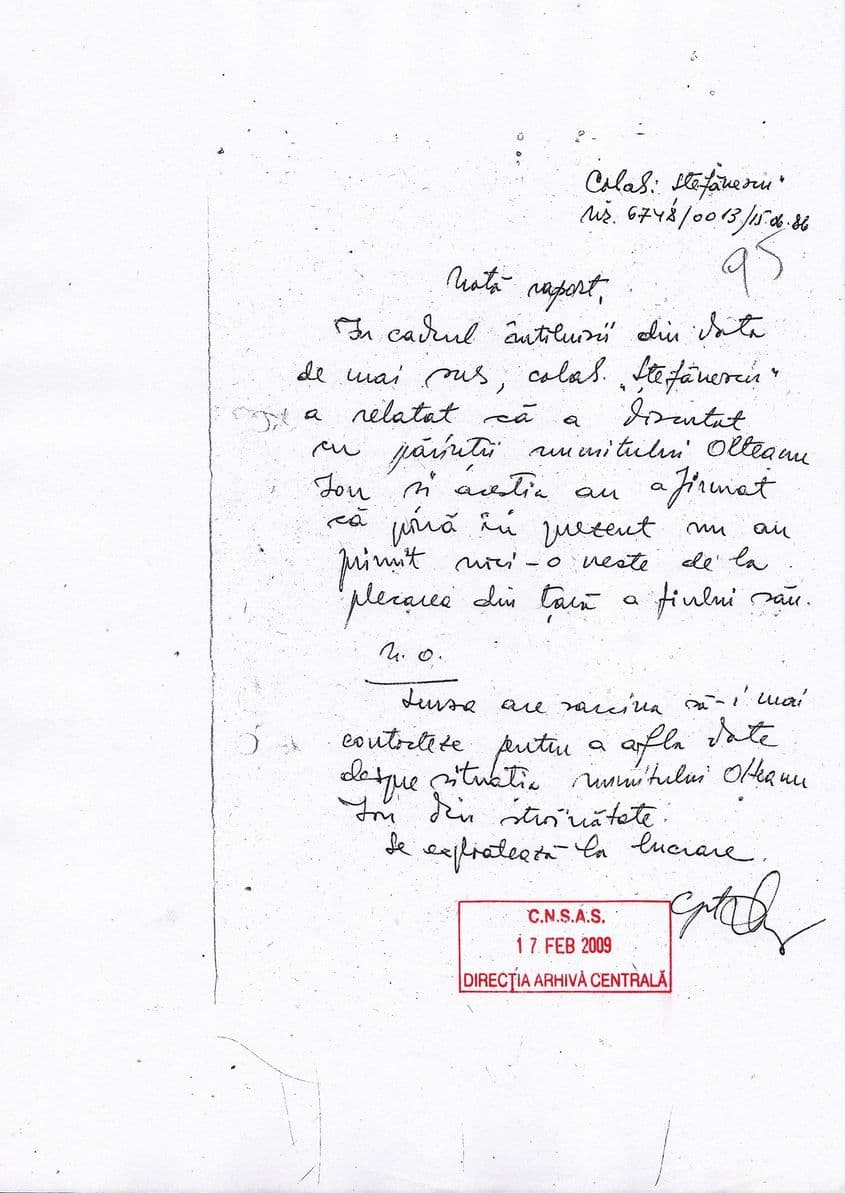 Colab: Ștefănescu"
Nr. 6748/0013/15.06.86
95
Notă raport,
În cadrul întîlnirii din data
de mai sus, colab. „Ștefănescu"
a relatat că a discutat
cu părinții numitului Olteanu
Ion și aceștia au afirmat
că pînă în prezent nu au
primit nici-o veste de la
plecarea din țară a fiului său.
N.O.
Sursa are sarcina să-i mai
contacteze pentru a afla date
despre situația numitului Olteanu
Ion din străinătate.
Se exploatează la lucrare.
Cpt.
C.N.S.A.S.
17 FEB 2009
DIRECȚIA ARHIVĂ CENTRALĂ